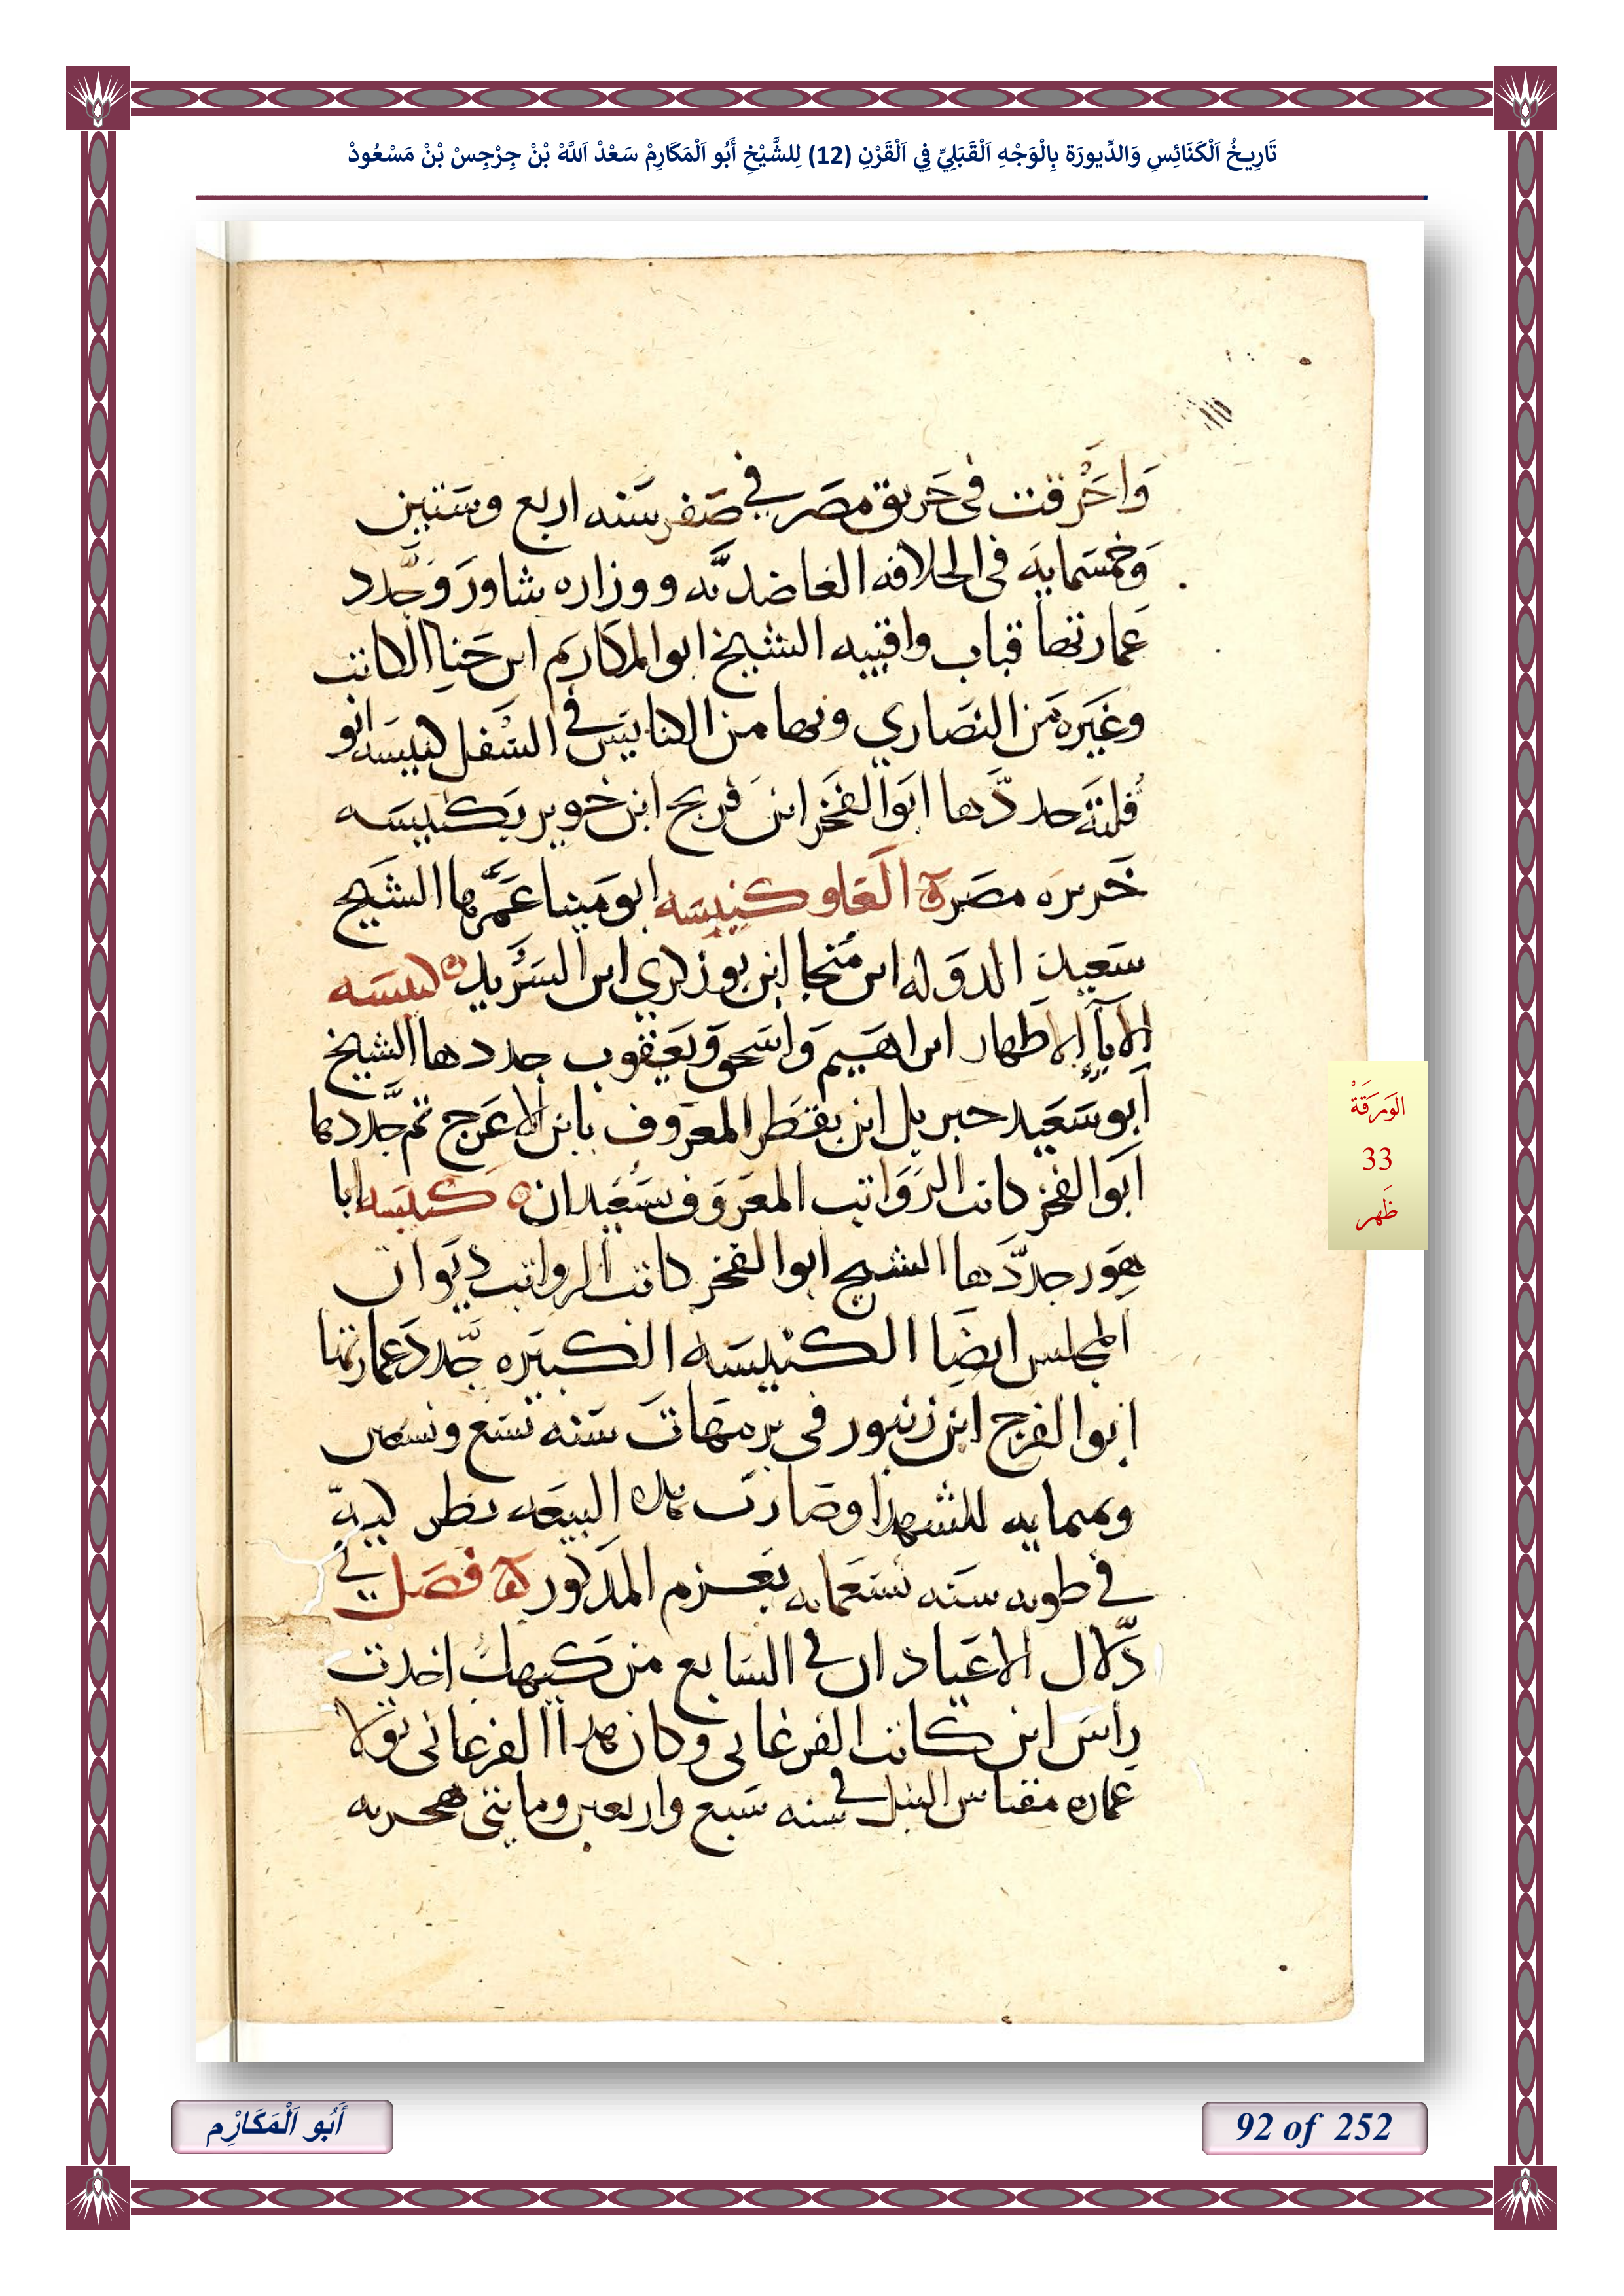 تَارِيخُ اَلْكَنَائِسِ وَالدِّيورَة بِالْوَجْهِ اَلْقَبَلِيِّ فِي اَلْقَرْنِ (12) لِلشَّيْخِ أَبُو اَلْمَكَارِمْ سَعْدْ اَللَّهْ بْنْ جِرْجِسْ بْنْ مَسْعُودْ
وَاحَترْقت فى حَريق مصَر في صَفر سَنه اربع وسَتين
وَخمسَمايَه فى الخلافه العاضديَّه ووزاره شاورَ وَجدَّد
عَمارتها قباب واقبيه الشيخ ابو المكارم ابن حَنا الكاتب
وغيَره مَن النصَاري وبها من الكنايسَ في السَفل كنيسَه ابو
جددَّها ابوَ الفخر ابن فريج ابن خوير بكنيسَه
مصَر العَلو كنيسَه ابو مَينا عَمَّرها الشيَخ
سَعيد الدوَله ابن مَنجا ابن بو زكري ابن السَرَّيد كنيسَه
الابآ الاطهار ابراهيم وَاسَحق وَيعَقوب جددها الشيخ
ابو سَعَيد جبريل ابن بقطَر المعَروف بابن الاعَرج ثم جدَّدها
ابَو الفخر كاتب الروَاتب المعَروَف بسَعَيدان كنيسَه ابا
هوَر جددَّها الشيخ ابو الفخر كاتب الرواتب ديَوان
المجلس ايضَا الكنيسَه الكبيَره جدَّد عمارتها
ابو الفرج ابن زنبور فى برمَهاتَ سَنه تسَع وتسعين
وثمنمايه للشهدا وصَارت هذه البيعَه
في طوبه سَنه تسَعمايه بعَزم المذكور فصَل في
دَلال الاعَياد ان في السَابع من كَيهك اخدت
راسَ ابن كاتب الفرغانى وكان هدا الفرغانى تولا
عماره مقياس النيل في سنه سَبع واربعين ومايتى هجريه
اَلْوَرَقَةْ
33
ظَهر
أَبُو اَلْمَكَارْمِ
92 of 252